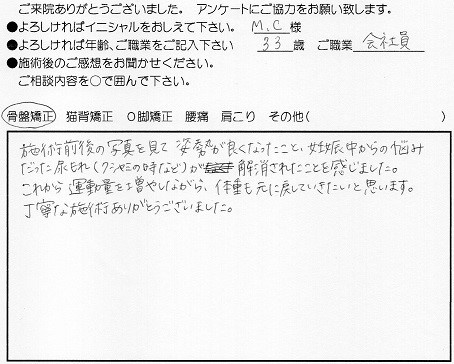 ご来院ありがとうございました。 アンケートにご協力をお願い致します。
●よろしければイニシャルをおしえて下さい。 M.C 様
●よろしければ年齢、ご職業をご記入下さい 33 歳 ご職業 会社員
●施術後のご感想をお聞かせください。
ご相談内容を○で囲んで下さい。
骨盤矯正 猫背矯正 O脚矯正 腰痛 肩こり その他( )
施術前後の写真を見て 姿勢が良くなったこと、妊娠中からの悩み
だった尿もれ(クシャミの時など)が 解消されたことを感じました。
これから 運動量を増やしながら、体重も元に戻していきたいと思います。
丁寧な施術ありがとうございました。